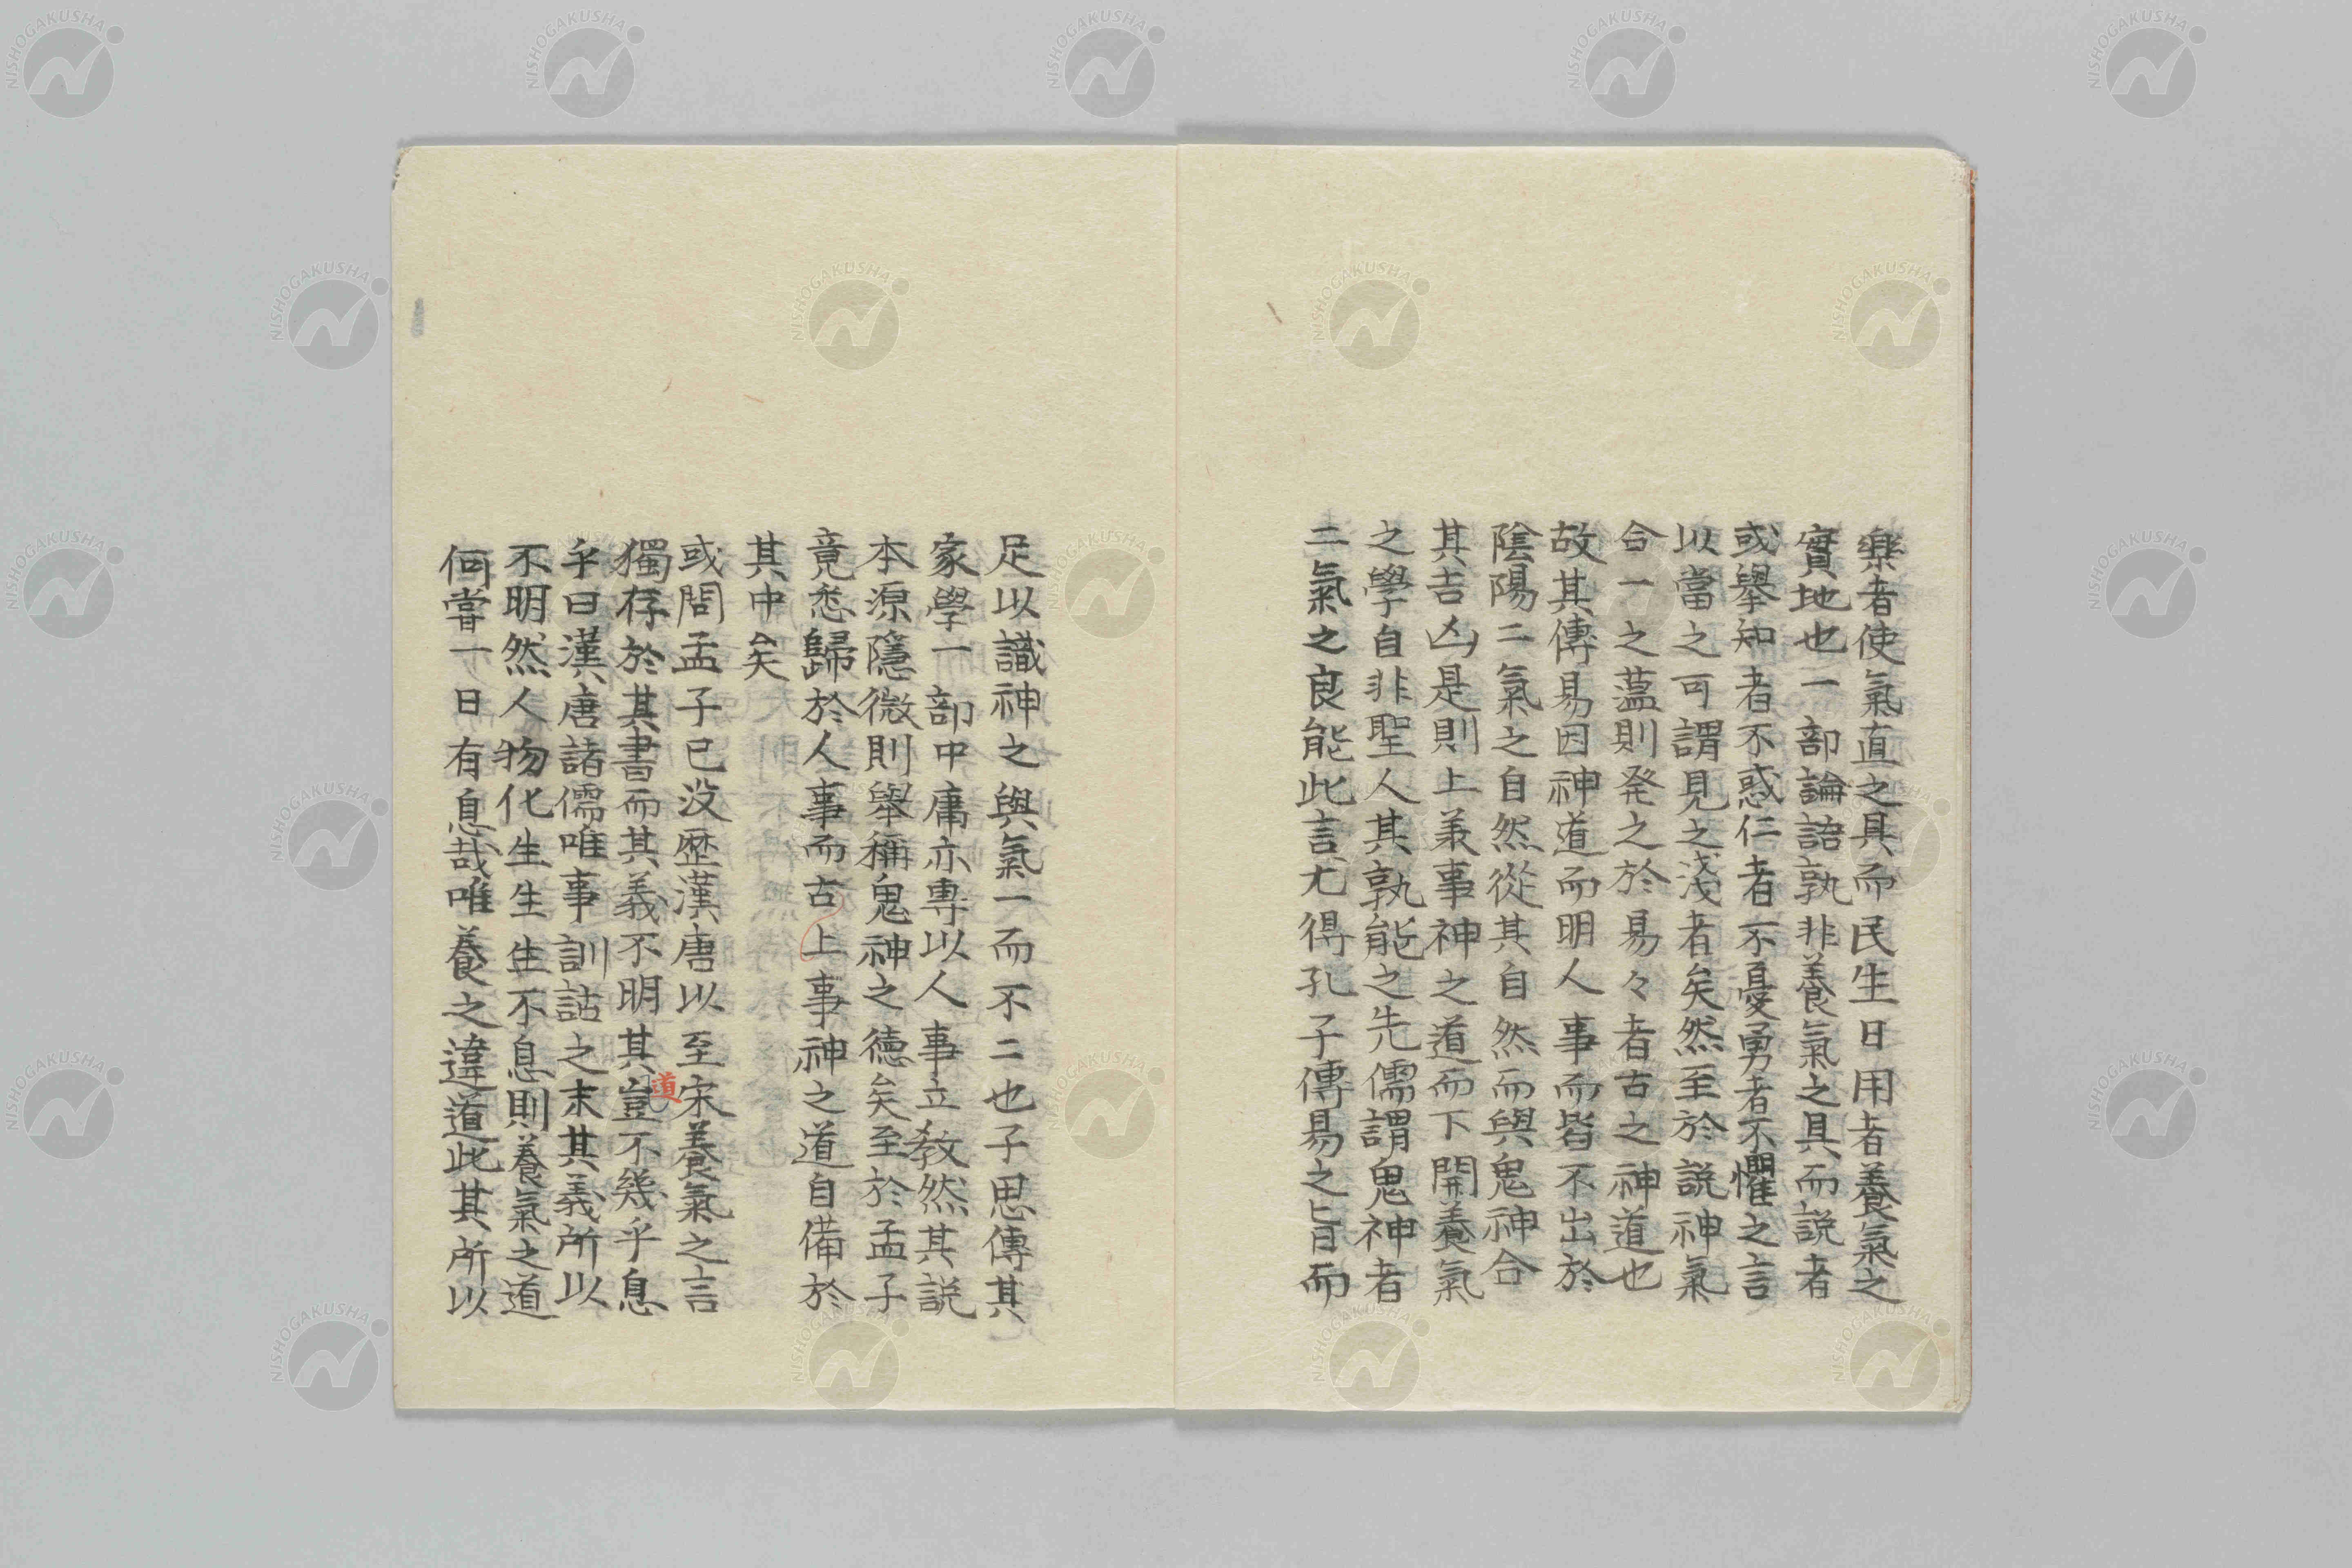 樂者使氣直之具而民生日用者養氣之
實地也一部論語孰非養氣之具而説者
或擧知者不惑仁者不憂勇者不懼之言
以當之可謂見之淺者矣然至於説神氣
合一之薀則発之於易々者古之神道也
故其傳易因神道而明人事而皆不出於
陰陽二氣之自然從其自然而與鬼神合
其吉凶是則上兼事神之道而下開養氣
之學自非聖人其孰能之先儒謂鬼神者
二氣之良能此言尤得孔子傳易之旨而
足以識神之與氣一而不二也子思傳其
家學一部中庸亦專以人事立教然其説
本源隱微則舉稱鬼神之德矣至於孟子
竟悉歸於人事而古上事神之道自備於
其中矣
或問孟子已没歴漢唐以至宋養氣之言
獨存於其書而其義不明其道豈不幾乎息
乎曰漢唐諸儒唯事訓詁之末其義所以
不明然人物化生生生不息則養氣之道
何嘗一日有息哉唯養之違道此其所以
NISHOGAKUSHA